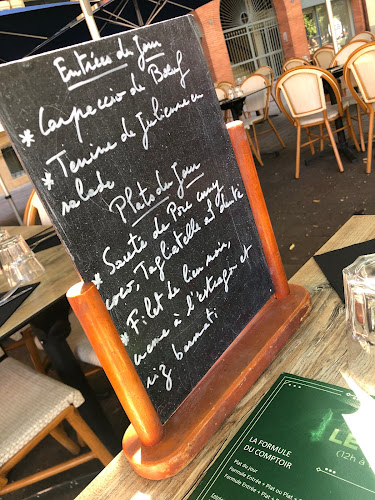 Entrées du Jour
* Carpaccio de Bœuf
* Terrine de Julienne en
salade
Plats du Jour
* Sauté de Porc curry
coco, Tagliatelle al dente
* Filet de lieu noir,
crème à l'estragon et
riz basmati
LE
(12h à
LA FORMULE
DU COMPTOIR
Plat du Jour
Formule Entrée + Plat ou Plat
Formule Entrée + Plat